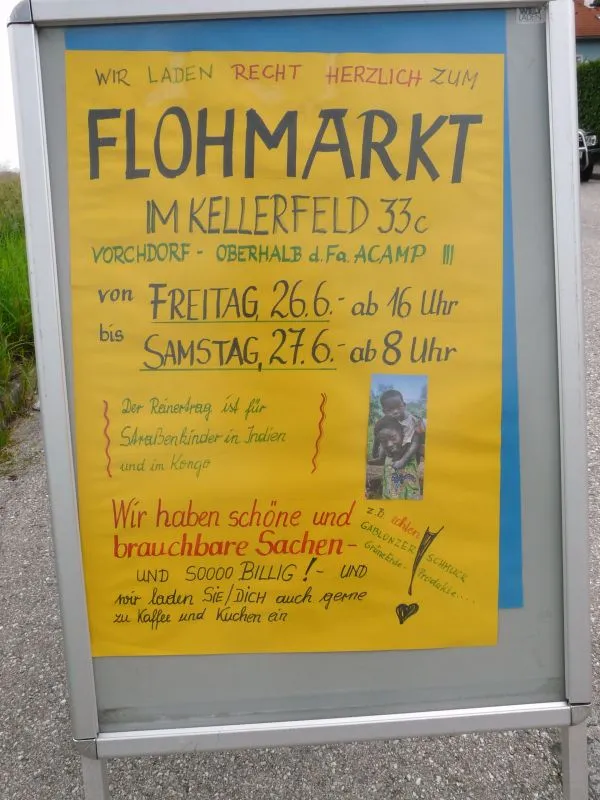 WELT LADEN
WIR LADEN RECHT HERZLICH ZUM
FLOHMARKT
IM KELLERFELD 33c
VORCHDORF - OBERHALB d.Fa. ACAMP !!!
von FREITAG, 26.6.- ab 16 Uhr
bis SAMSTAG, 27.6.- ab 8 Uhr
Der Reinertrag ist für
Straßenkinder in Indien
und im Kongo
Wir haben schöne und
brauchbare Sachen -
UND SOOOO BILLIG! - UND
wir laden SIE/DICH auch gerne
zu Kaffee und Kuchen ein
z.B. echten
GABLONZER SCHMUCK
Grüne Erde.. Produkte....